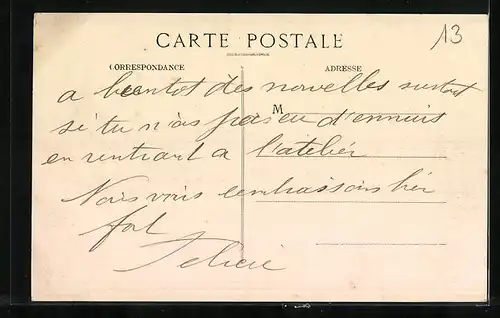 CARTE POSTALE
13
CORRESPONDANCE
ADRESSE
a bientot des nouvelles surtout
M
si tu n'as pas eu d'ennuis
en rentrant a l'atelier
Nous vous embrassons bien
fort
Felicie